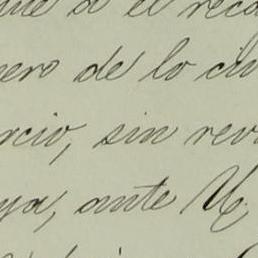 que a el reco
ero de lo civ
rcio, sin rev
ya, ante U.